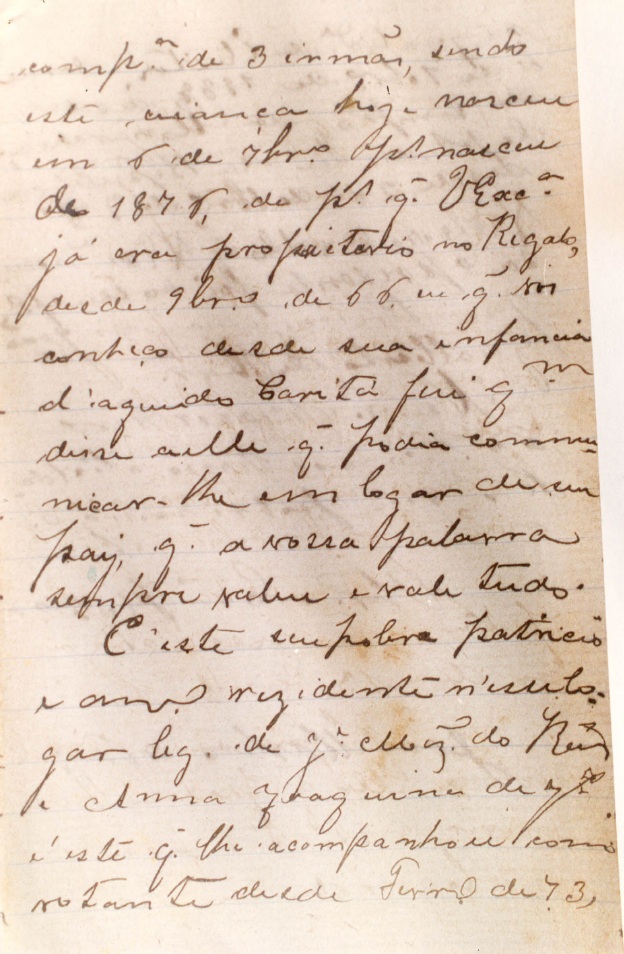 comp.ª de 3 irmãs, sendo
este criança hoje nasceu
em 6 de 7br.º p.ª nasceu
de 1876, de p.ª q. VExc.ª
já era propriitario no Regalo,
desde 9br.º de 66 eu q. vi
conheço desde sua infancia
d'aquido Caritá fui q.m
disse a elle q. podia commu-
nicar-lhe em logar de seu
pay, q. a vossa palavra
sempre valeu e vale tudo.
E' este seu pobre patricio
e am.º rezidente n'esse lo-
gar leg. de J.ª do
e Anna Joaquina de
e' este q. lhe acompanhou como
votante desde de 73,